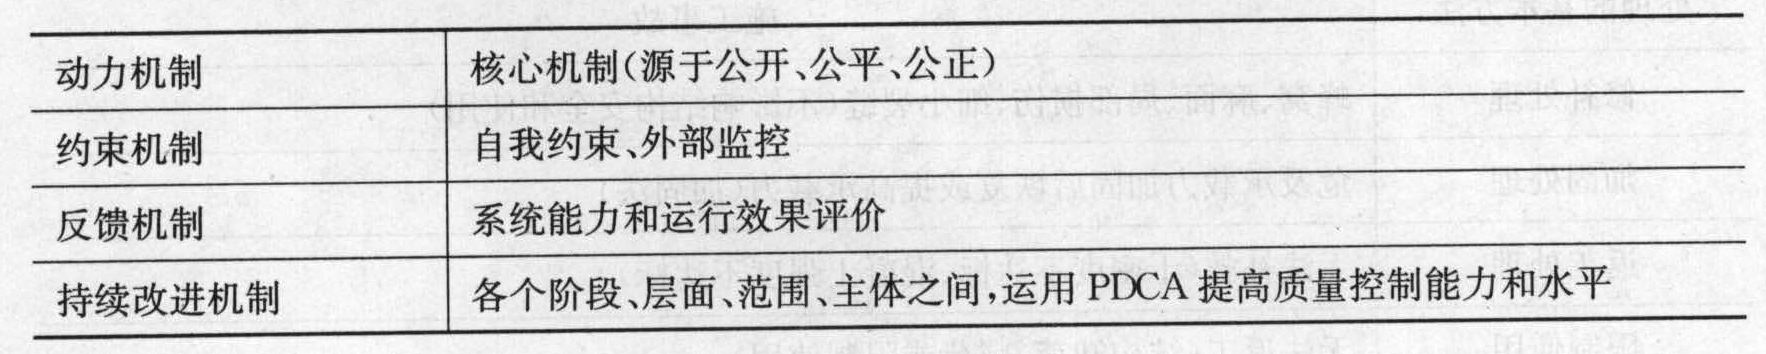 动力机制 核心机制(源于公开、公平、公正)
约束机制 自我约束、外部监控
反馈机制 系统能力和运行效果评价
持续改进机制 各个阶段、层面、范围、主体之间,运用 PDCA 提高质量控制能力和水平